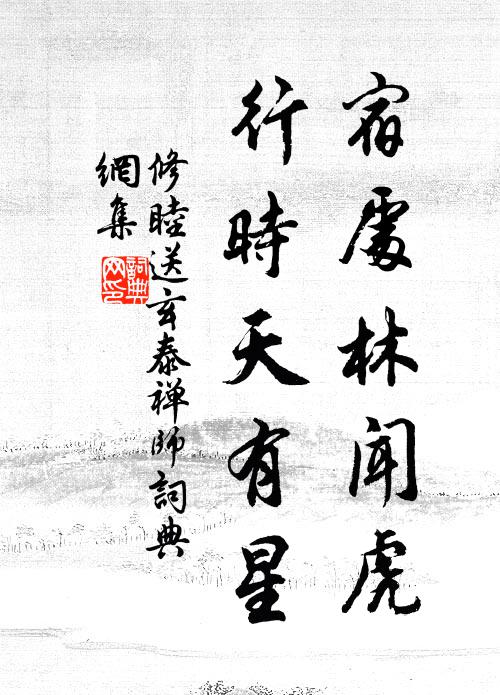 宿處林聞虎
行時天有星
修睦送玄泰禅師詞典
網集
詞典
网印